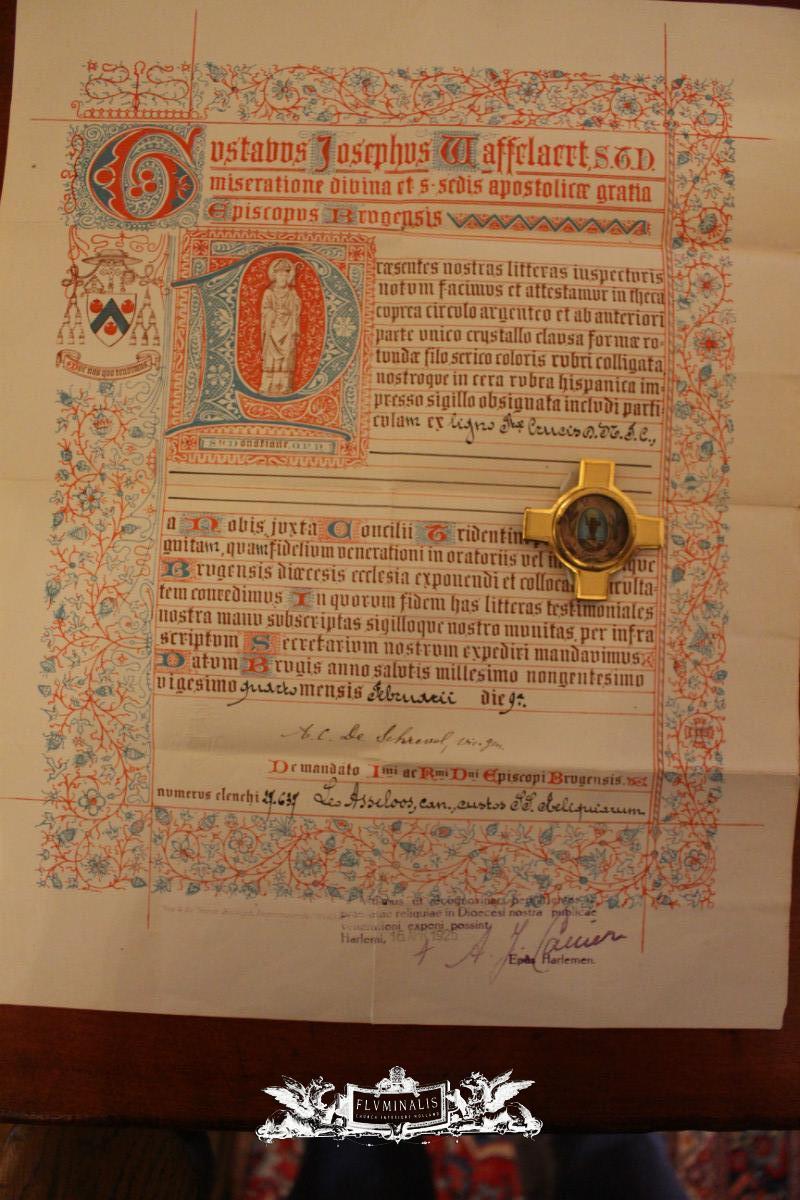 Gustavus Josephus Waffelaert, S.T.D.
miseratione divina et s. sedis apostolicæ gratia
Episcopus Brugensis
Præsentes nostras litteras inspecturis
notum facimus et attestamur in theca
cuprea circulo argenteo et ab anteriori
parte unico crystallo clausa formæ ro-
tundæ filo serico coloris rubri colligata
nostroque in cera rubra hispanica im-
presso sigillo obsignata includi parti
culam ex ligno Stæ Crucis D. N. J. C.,
S. Donatiane. O.P.N.
a Nobis juxta Concilii Tridentin
gnitam, quam fidelium venerationi in oratoriis vel que
Brugensis diœcesis ecclesia exponendi et colloca culta-
tem concedimus In quorum fidem has litteras testimoniales
nostra manu subscriptas sigilloque nostro munitas, per infra
scriptum Secretarium nostrum expediri mandavimus
Datum Brugis anno salutis millesimo nongentesimo
vigesimo quarto mensis Februarii die 9a.
A. C. De Schrevel, vic. gen.
De mandato Illmi ac Rmi Dni Episcopi Brugensis.
numerus elenchi 27.637 Leo Asseloos, can., custos SS. Reliquiarum
Vidimus et recognovimus
reliquiae in Dioecesi nostra publicae
venerationi exponi possint.
Harlemi, 1925
† A. J. Callier
Epûs Harlemen.
FLVMINALIS
CHURCH INTERIORS HOLLAND